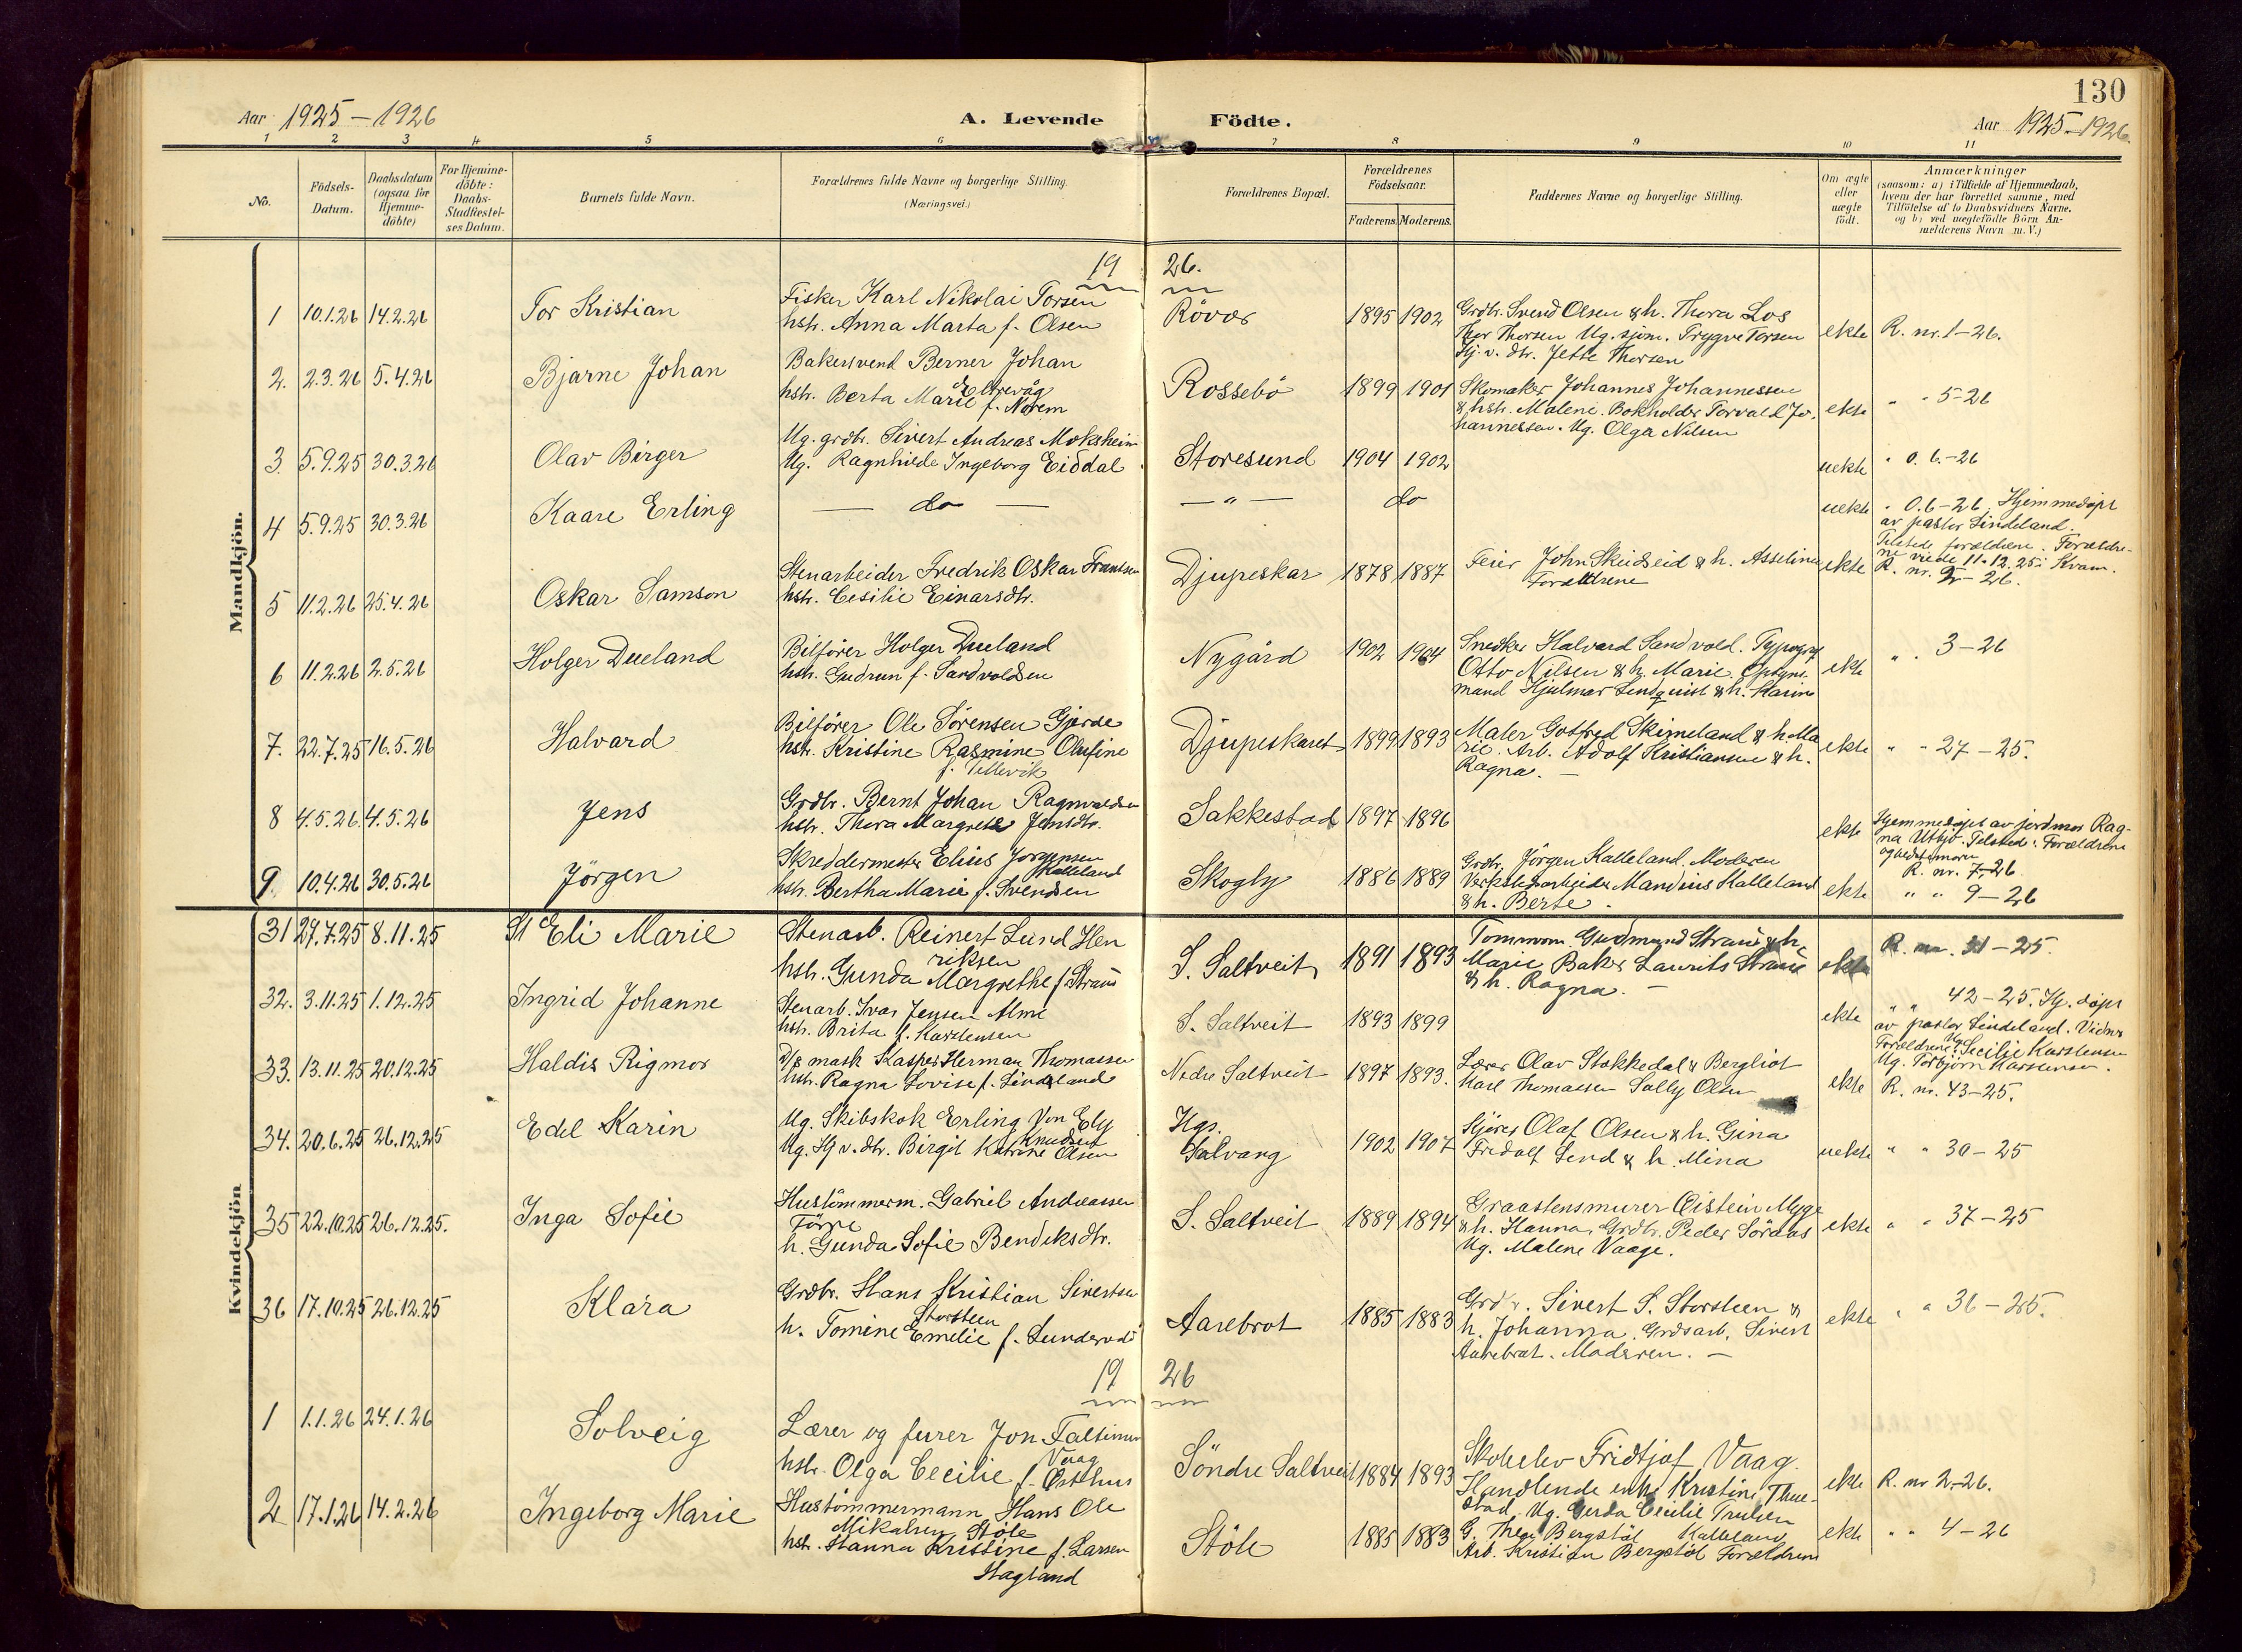 130
Aar 1925-1926
A. Levende Födte.
Aar 1925-1926
1 2 3 4 5 6 7 8 9 10 11
No.
Födsels-Datum.
Daabsdatum (ogsaa for Hjemmedöbte)
For Hjemmedöbte: Daabs-Stadfæstelses Datum.
Barnets fulde Navn.
Forældrenes fulde Navne og borgerlige Stilling. (Næringsvei.)
Forældrenes Bopæl.
Forældrenes Födselsaar.
Faderens. Moderens.
Faddernes Navne og borgerlige Stilling.
Om ægte eller uægte födt.
Anmærkninger
(saasom: a) i Tilfælde af Hjemmedaab,
hvem der har forrettet samme, med
Tilföielse af to Daabsvidners Navne.
og b) ved uægtefödte Börn An-
melderens Navn m. V.)
Mandkjön.
19 26.
1 10.1.26 14.2.26 Tor Kristian
Fisker Karl Nikolai Torsen
hstr. Anna Marta f. Olsen
Rövær 1895 1902
Grdbr. Svend Olsen & h. Thora Los
Thor Thorsen Ug. sjöm. Trygve Torsen
Hj. v. dtr. Jette Thorsen
ekte R. nr. 1-26.
2. 2.3.26 5.4.26 Bjarne Johan
Bakersvend Berner Johan
Eltrevåg
hstr. Berta Marie f. Norem
Rossebö 1899 1901
Skomaker Johannes Johannessen
& hstr. Malene. Bokholder Torvald Jo-
hannessen. Ug. Olga Nilsen
ekte " " 5-26
3. 5.9.25 30.3.26 Olav Birger
Ug. grdbr. Sivert Andreas Moksheim
Ug. Ragnhilde Ingeborg Eiddal
Storesund 1904 1902
uekte " 0.6.-26
4 5.9.25 30.3.26 Kaare Erling
— do — — " — do
uekte " 0.6-26, Hjemmedöpt
av pastor Lindeland.
Tilstede forældrene. Forældre-
ne viede 11.12.25 i Kvam.
5 11.2.26 25.4.26 Oskar Samson
Stenarbeider Fredrik Oskar Frantsen
hstr. Cesilie Einarsdtr.
Djupeskar 1878 1887
Feier John Skeidseid & h. Asseline
Forældrene
ekte R. nr. 2-26.
6 11.2.26 2.5.26 Holger Dueland
Bilförer Holger Dueland
hstr. Gudrun f. Sandvoldsen
Nygård 1902 1904
Snedker Halvard Sandvold. Typograf
Otto Nilsen & h. Marie. Opsyns-
mand Hjalmar Lindquist & h. Karine
ekte " " 3-26
7. 22.7.25 16.5.26 Halvard
Bilförer Ole Sörensen Gjerde
hstr. Kristine Rasmine Olufine
f. Tellevik
Djupeskaret 1899 1893
Maler Gotfred Skimeland & h. Ma
rie. Arb. Adolf Kristiansen & h.
Ragna. —
ekte " " 27-25.
8 4.5.26. 4.5.26 Jens
Grdbr. Bernt Johan Ragnvaldsen
hstr. Thora Margrete Jensdtr.
Sakkestad 1897 1896
ekte Hjemmedöpt av jordmor Rag-
na Utbjö. Tilsted: Forældrene
og bedstemoren
R. nr. 7-26
9. 10.4.26 30.5.26 Jörgen
Skreddermester Elius Jorgensen
Kalleland
hstr. Bertha Marie f. Svendsen
Skogly 1886 1889
Grdbr. Jörgen Kalleland. Moderen
Verkstedarbeider Mandius Kalleland
& h. Berte.
ekte " " 9-26
Kvindekjön
31 29.7.25 8.11.25 Eli Marie
Stenarb. Reinert Lund Hen
riksen
hstr. Gunda Margrethe f. Straus
S. Saltveit 1891 1893
Tömmerm. Gudmund Straus & h.
Marie Baker Laurits Straus
& h. Ragna. —
ekte R. nr. 31-25.
32. 3.11.25 1.12.25 Ingrid Johanne
Stenarb. Ivar Jensen Alme
hstr. Brita f. Karstensen
S. Saltveit 1893 1899
ekte " " 42-25. Hj. döpt
av pastor Lindeland. Vidner
Forældrene Ug. Secilie Karstensen
Ug. Torbjörn Karstensen.
33. 13.11.25 20.12.25 Haldis Rigmor
D/s mask Kasper Herman Thomassen
hstr. Ragna Lovise f. Lindeland
Nedre Saltveit 1897 1893.
Lærer Olav Stakkedal & Bergliot
Karl Thomassen Sally Olsen
ekte R. nr. 43-25.
34. 20.6.25 26.12.25 Edel Karin
Ug. Skibskok Erling Von Ely
Knudsen
Ug. Hj v. dtr. Birgit Katrine Olsen
Hgs.
Salvang 1902 1907
Skjörer Olaf Olsen & h. Gina
Fridolf Lend & h. Mina
uekte " " 30-25
35 22.10.25 26.12.25. Inga Sofie
Hustömmerm. Gabriel Andreassen
Förre
h. Gunda Sofie Bendiksdtr.
S. Saltveit 1889 1894
Graastensmurer Öistein Myge
& h. Hanna, Grdbr. Peder Söraas
Ug. Malene Vaage.
ekte " " 37-25
36 17.10.25 26.12.25 Klara
Grdbr. Hans Kristian Sivertsen
Storsteen
h. Tomine Emelie f. Lundervad
Aarebrot 1885 1883
Grdbr. Sivert S. Storsteen &
h. Johanna. Grdsarb. Sivert
Aarebrot. Moderen. —
ekte " " 36-25.
19 26
1 1.1.26 24.1.26 Solveig
Lærer og furer Jon Faltinsen
Vaag
hstr. Olga Cecilie f. Østhus
Söndre Saltveit 1884 1893
Skoleelev Fridtjof Vaag.
Handlende enke Kristine Thue-
stad, Ug. Gerda Cecilie Trulsen
ekte R. nr 2-26.
2 17.1.26 14.2.26 Ingeborg Marie
Hustömmermann Hans Ole
Mikalsen Stöle
hstr. Hanna Kristine f. Larsen
Hagland
Stöle 1885 1883
G. Thea Bergstöl Kalleland
Arb. Kristian Bergstöl Forældrene
ekte " " 4-26